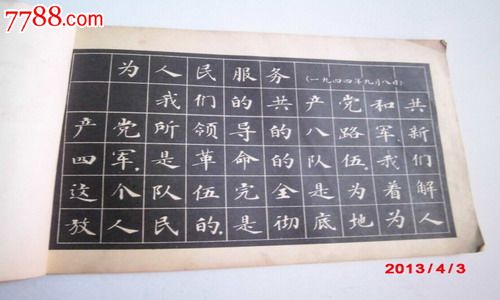 7788.com
为人民服务 (一九四四年九月八日)
我们的共产党和共
产党所领导的八路军、新
四军,是革命的队伍。我们
这个队伍完全是为着解
放人民的,是彻底地为人
2013/4/3